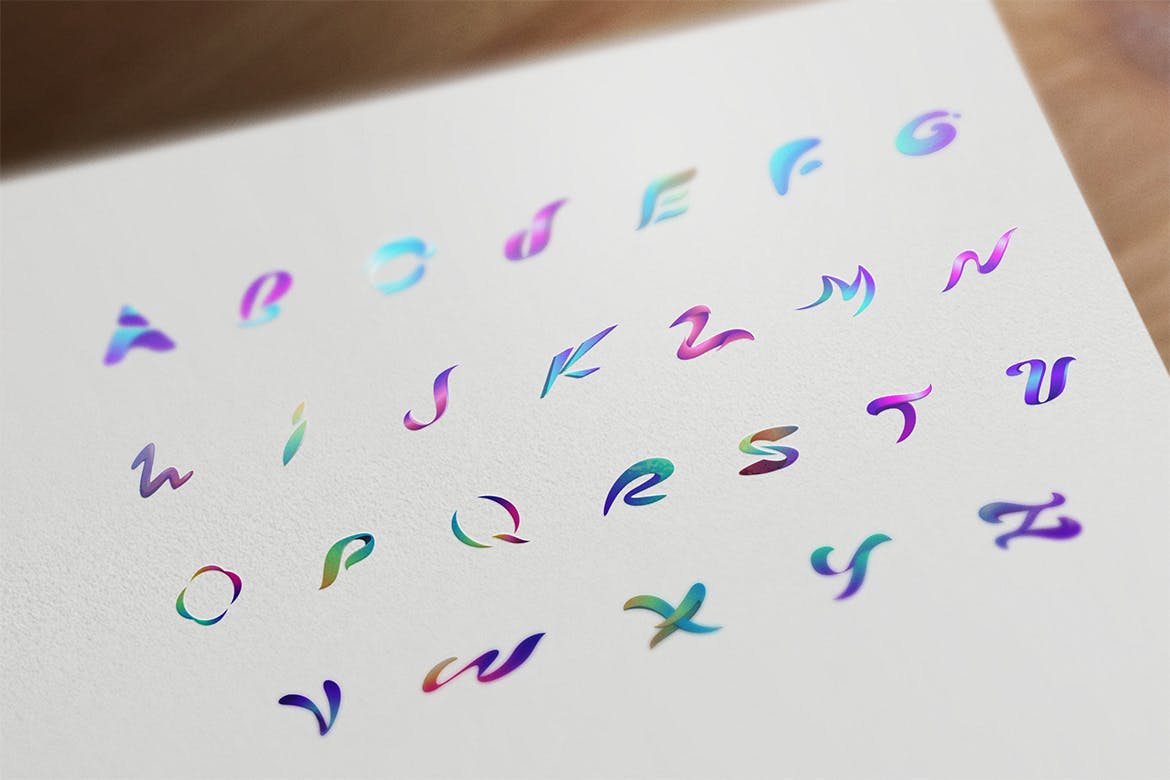 A B C d E F G
h i J K L M N
O P Q R S T U
V W X Y Z